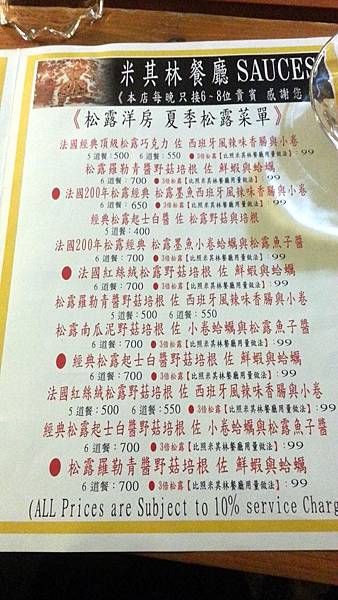 米其林餐廳 SAUCES
《本店每晚只接6~8位貴賓 感謝您
《松露洋房 夏季松露菜單》
法國經典頂級松露巧克力 佐 西班牙風辣味香腸與小卷
5 道餐:500 6道餐:550 ●3倍松露【比照米其林餐廳用量做法】:99
松露羅勒青醬野菇培根 佐 鮮蝦與蛤蠣
6 道餐:700 ●3倍松露【比照米其林餐廳用量做法】:99
● 法國200年松露經典 松露墨魚西班牙風辣味香腸與小卷
6 道餐:650 ●3倍松露【比照米其林餐廳用量做法】:99
經典松露起士白醬 佐 松露野菇與培根
5 道餐:400
法國200年松露經典 松露墨魚小卷蛤蠣與松露魚子醬
6 道餐:700 ●3倍松露【比照米其林餐廳用量做法】:99
● 法國紅絲絨松露野菇培根 佐 鮮蝦與蛤蠣
6 道餐:700 ●3倍松露【比照米其林餐廳用量做法】:99
松露羅勒青醬野菇培根 佐 西班牙風辣味香腸與小卷
5 道餐:500 6道餐:550 ●3倍松露【比照米其林餐廳用量做法】:99
松露南瓜泥野菇培根 佐 小卷蛤蠣與松露魚子醬
6 道餐:700 ●3倍松露【比照米其林餐廳用量做法】:99
● 經典松露起士白醬野菇培根 佐 鮮蝦與蛤蠣
6 道餐:700 ●3倍松露【比照米其林餐廳用量做法】:99
法國紅絲絨松露野菇培根 佐 西班牙風辣味香腸與小卷
5 道餐:500 6道餐:550 ●3倍松露【比照米其林餐廳用量做法】:99
經典松露起士白醬野菇培根 佐 小卷蛤蠣與松露魚子醬
6 道餐:700 ●3倍松露【比照米其林餐廳用量做法】:99
● 松露羅勒青醬野菇培根 佐 鮮蝦與蛤蠣
6 道餐:700 ●3倍松露【比照米其林餐廳用量做法】:99
(ALL Prices are Subject to 10% service Charg